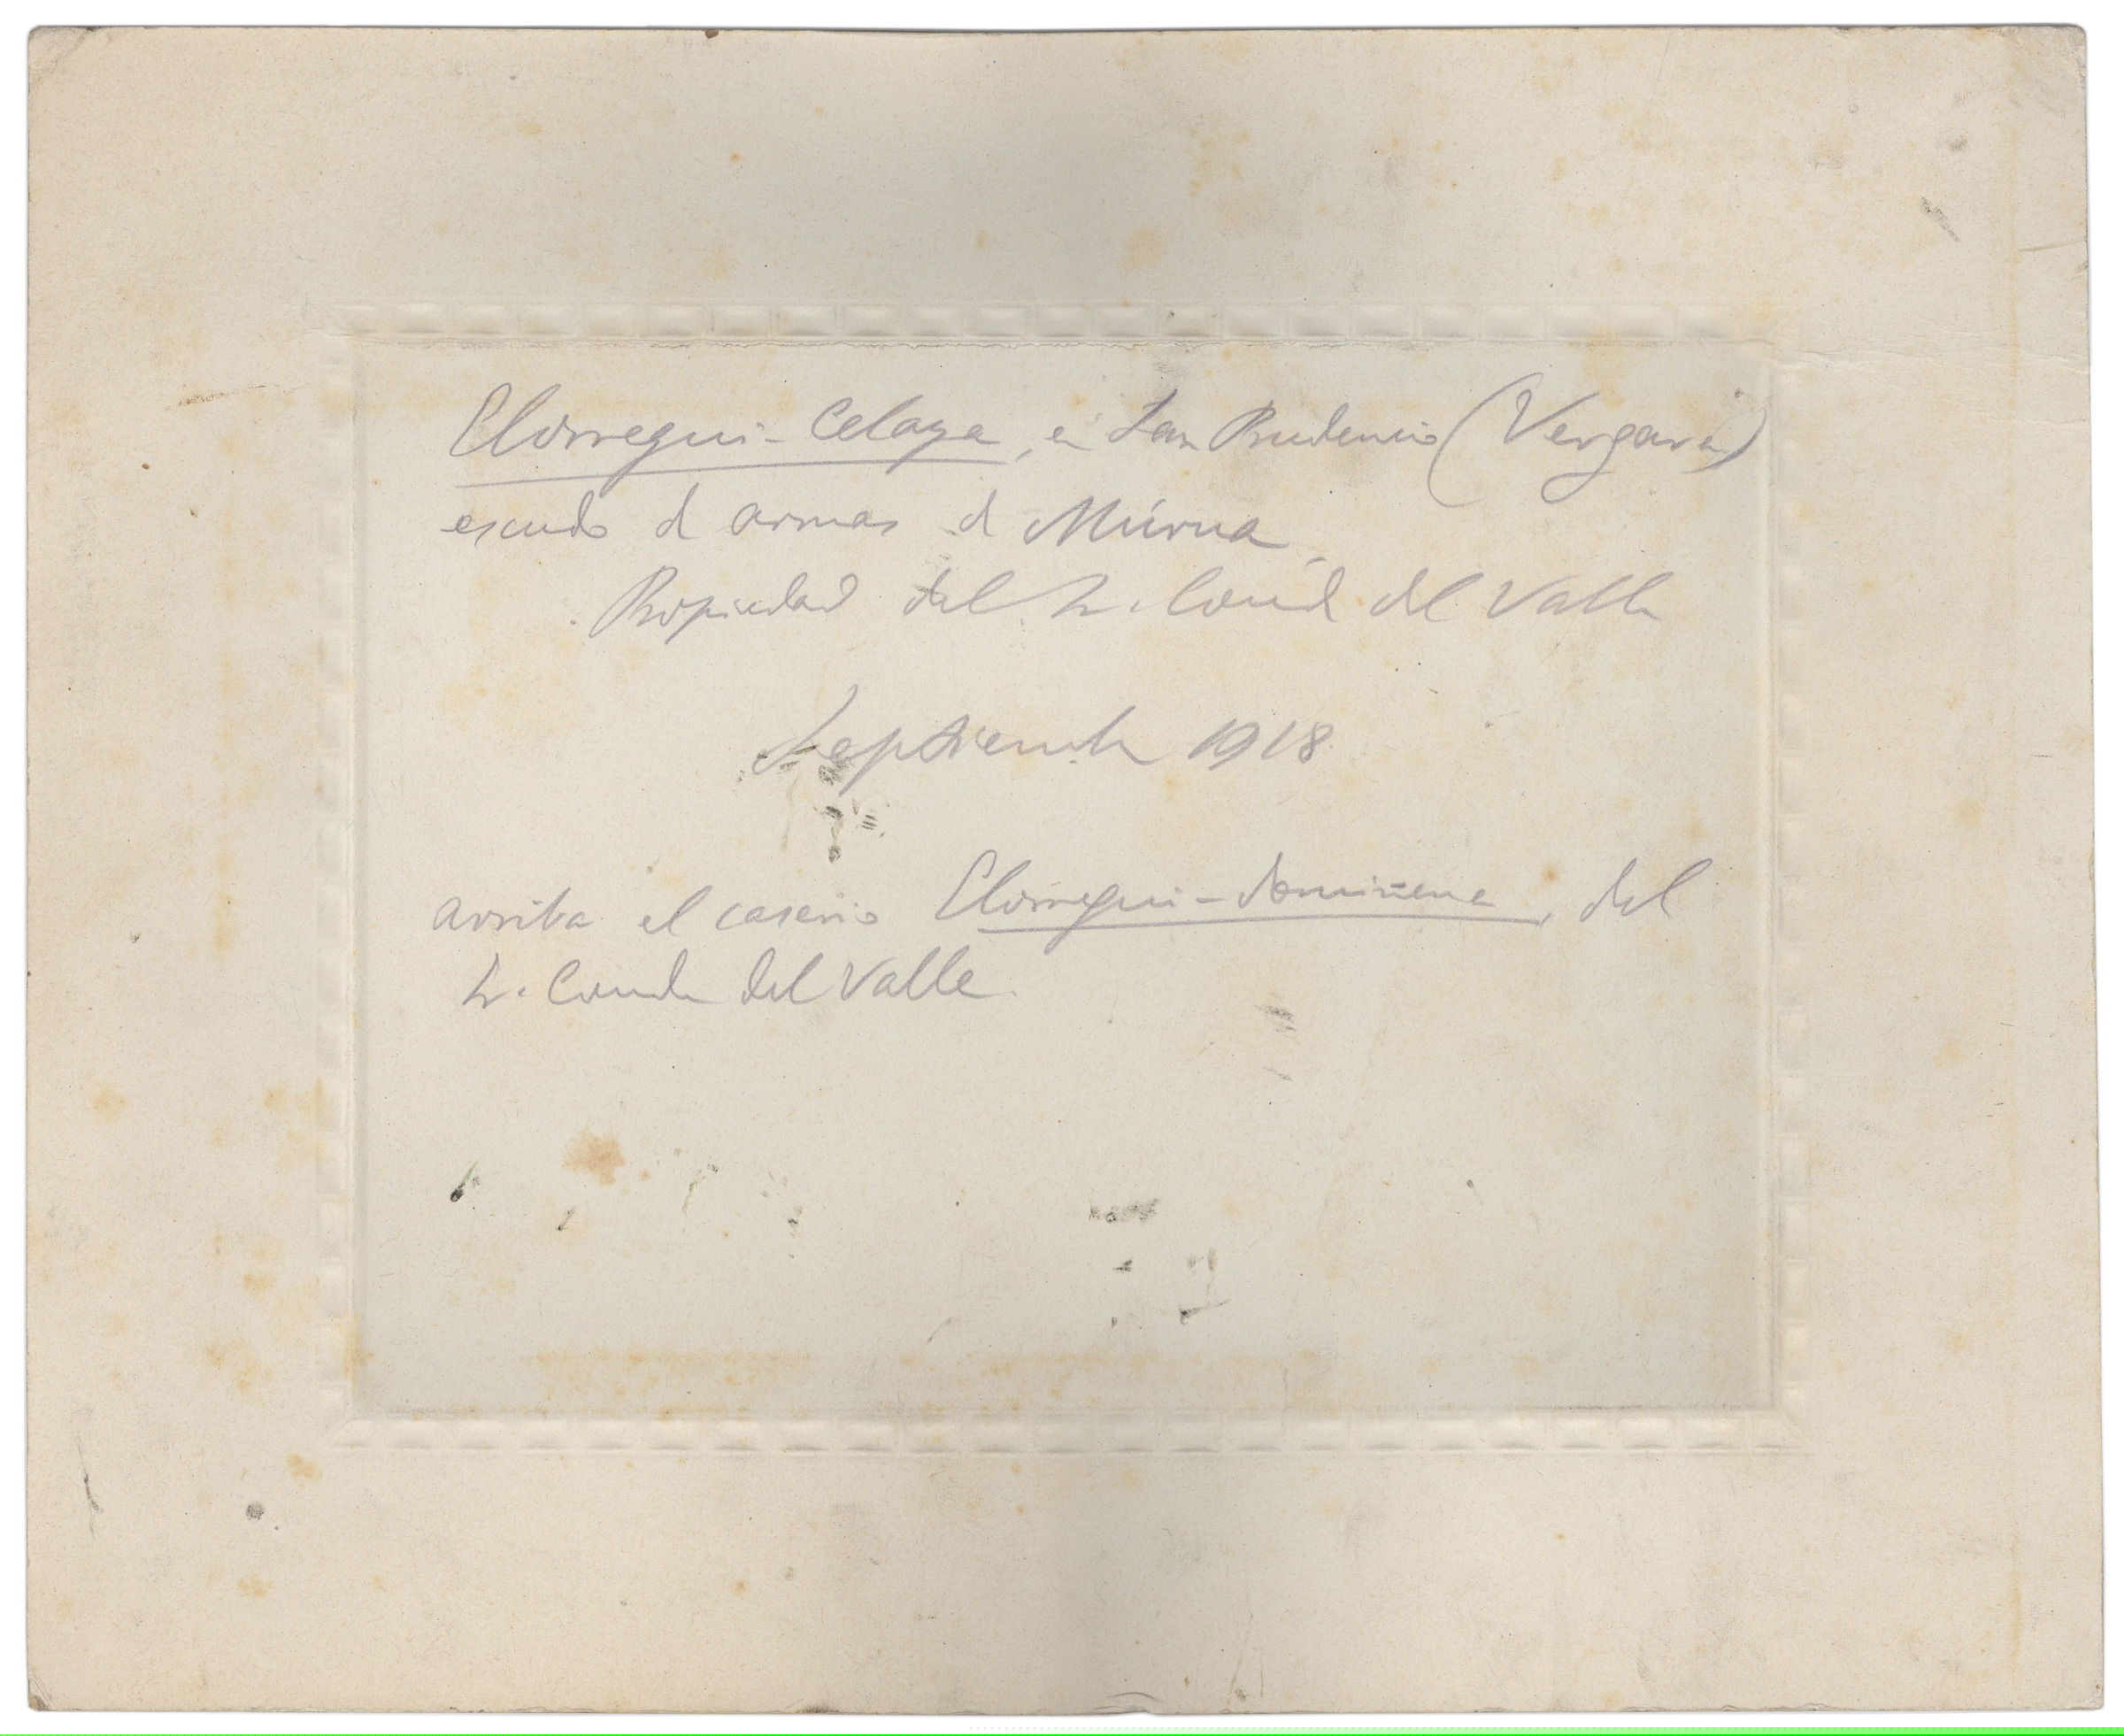 Elorregui-Celaya, en San Prudencio (Vergara)
escudo de armas de Múrua.
Propiedad del Sr. Conde del Valle
Septiembre 1918
arriba el caserio Elorregui- del
Sr. Conde del Valle.